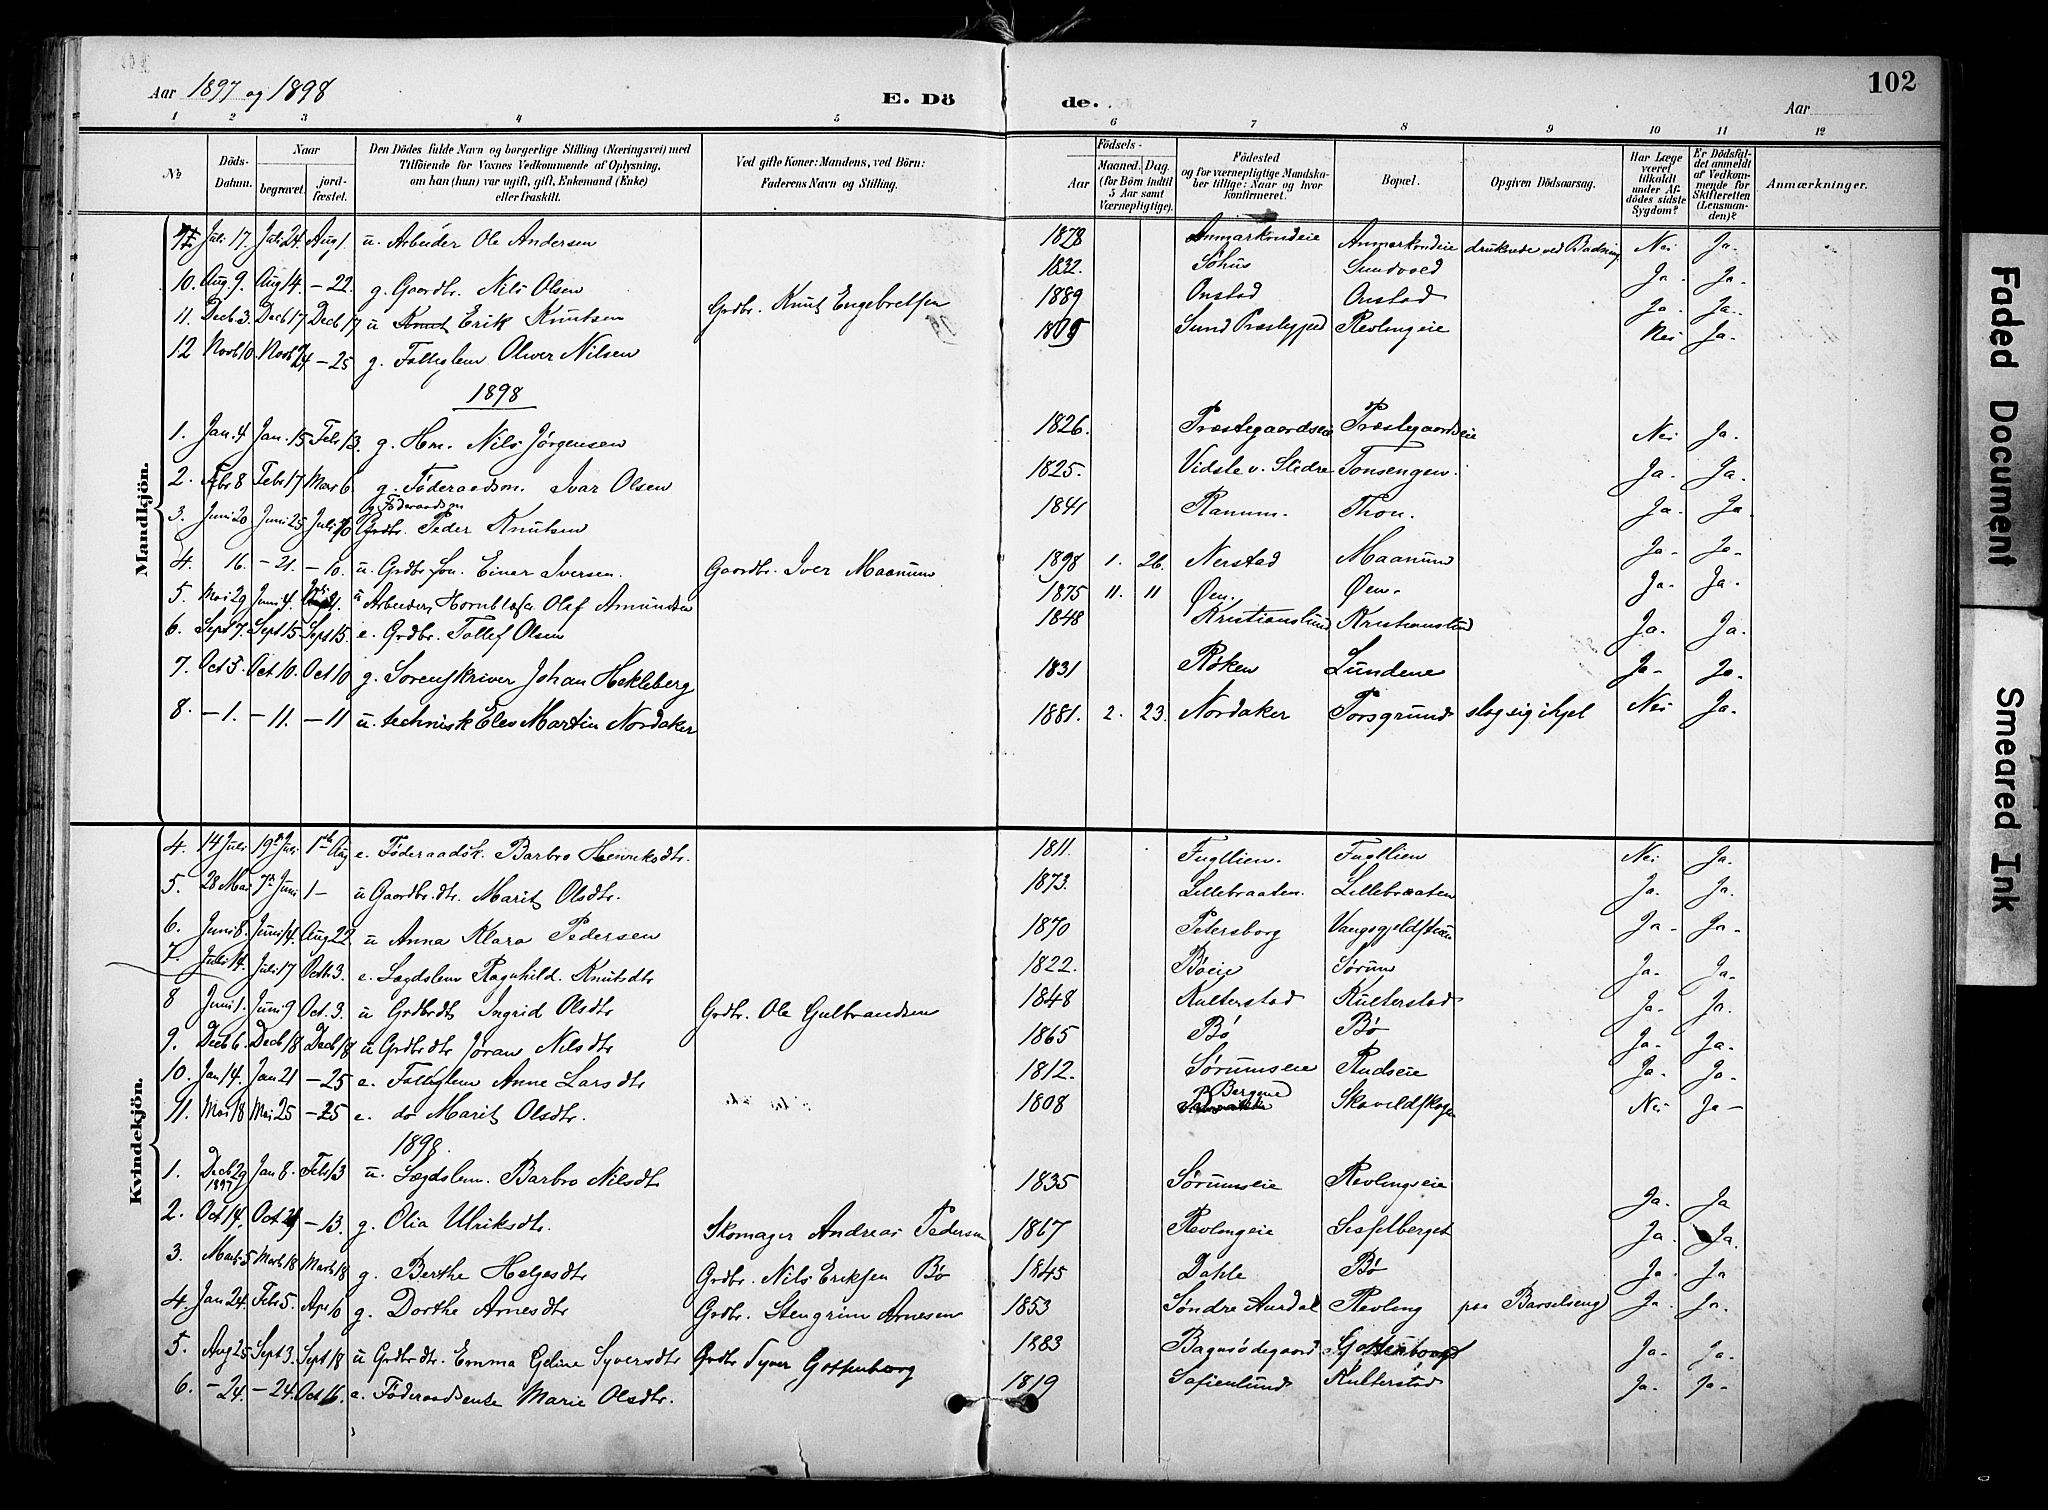 Aar 1897 og 1898
E. Dö
de.
Aar
102
1 2 3 4 5 6 7 8 9 10 11 12
№
Döds-Datum.
Naar
begravet.
jord-fæstet.
Den Dödes fulde Navn og borgerlige Stilling (Næringsvei) med
Tilföiende for Voxnes Vedkommende af Oplysning,
om han (hun) var ugift, gift, Enkemand (Enke)
eller fraskilt.
Ved gifte Koner: Mandens, ved Börn:
Faderens Navn og Stilling.
Födsels-
Aar
Maaned. Dag.
(for Börn indtil
5 Aar samt
Værnepligtige).
Födested
og for værnepligtige Mandska-
ber tillige: Naar og hvor
konfirmeret.
Bopæl.
Opgiven Dödsaarsag.
Har Læge
været
tilkaldt
under Af-
dödes sidste
Sygdom?
Er Dödsfal-
det anmeldt
af Vedkom-
mende for
Skifteretten
(Lensman-
den)?
Anmærkninger.
Mandkjön.
Juli 17. Juli 24. Aug 1. u. Arbeider Ole Andersen 1878 druknede ved Badning Nei Ja.
10. Aug. 9. Aug 14. – 22. g. Gaardbr. Nils Olsen 1832. Sundvold Ja. Ja.
11. Decb 3. Decb 17 Decb 17 u Knut Erik Knutsen Grdbr. Knut Engebretsen 1889 Onstad Onstad Ja. Ja.
12 Novb 10. Novb 24 – 25 g. Oliver Nilsen Revlingeie Nei Ja.
1898
1. Jan. 4 Jan. 15 Febr 13. g. Hm. Nils Jørgensen 1826. Præstegaardseie Præstegaardseie Nei Ja.
2. Febr 8 Febr 17 Mars 6. g. Föderaadsm. Ivar Olsen 1825. Vidste v. Slidre Tonsengen. Ja. Ja.
3. Juni 20 Juni 25 Juli 10 g Föderaadsm Grdbr. Peder Knutsen 1841 Ranum. Thon. Ja. Ja.
4. 16. – 21. – 10. u. Grdbr. søn. Einar Iversen. Gaardbr. Iver Maanum 1898 1. 26. Nerstad Maanum Ja– Ja–
5. Mai 29 Juni 4. u Arbeider, Hornblæser Olaf Amundsen 1875 11. 11 Øen. Øen. Ja. Ja.
6. Sept 7. Sept 15 Sept 15. e. Grdbr. Tollef Olsen 1848 Kristianslund Kristianslund Ja. Ja.
7. Oct 3. Oct 10. Oct 10 g. Sorenskriver Johan Hekleberg 1831 Røken Lundene Ja– Ja.
8. – 1. – 11. – 11 u. teknisk Elev Martin Nordaker 1881. 2. 23. Nordaker Porsgrund slog sig ihjel Nei Ja.
Kvindekjön.
4. 14 Juli 19de Juli 1ste Aug e. Föderaadsk. Barbro Henriksdtr. 1811. Fugllien. Fugllien Nei Ja.
5. 28 Mai 7de Juni 1– u Gaardbr.dtr. Marit Olsdtr. 1873. Lillebraaten. Lillebraaten Ja. Ja.
6. Juni 8. Juni 14. Aug 22. u Anna Klara Pedersen 1870 Petersborg Ja– Ja–
7. Juli 14. Juli 17 Octb. 3. e. Lægdslem Ragnhild Knutsdtr 1822. Bøeie Sørum Ja. Ja.
8 Juni 1. Juni 9 Oct. 3. u Grdbr.dtr Ingrid Olsdtr Grdbr. Ole Gulbrandsen 1848 Kulterstad Kulterstad Ja. Ja.
9. Decb 6. Decb 18 Decb 18 u Grdbr dtr Jøran Nilsdtr 1865 Bø Bø Ja. Ja.
10. Jan 14. Jan 21 – 25 e. Anne Larsdtr 1812. Sørumseie Rudseie Ja. Ja.
11. Mai 18 Mai 25 – 25 e. do Marit Olsdtr. 1808 p Bergene Skoveldskogen Nei Ja–
1898.
1. Decb 29 1897 Jan 8. Feb 13 u. Lægdslem. Barbro Nilsdtr 1835 Sørumseie Revlingseie Ja. Ja
2. Oct 14. Oct 21 – 13. g. Olia Ulriksdtr. Skomager Andreas Pedersen 1867 Revlingeie Sisselberget Ja. Ja.
3. Marts 5 Marts 18 Marts 18 g. Berthe Helgesdtr Grdbr. Nils Eriksen Bø 1845 Dahle Bø Ja. Ja
4. Jan 24. Febr 5. Apr 6 g. Dorthe Arnesdtr Grdbr. Stengrim Arnesen 1853 Søndre Aurdal Revling paa Barselseng Ja. Ja.
5. Aug 25 Sept 3. Sept 18 u Grdbr dtr. Emma Geline Syversdtr Grdbr Syver Gottenborg 1883 Bagnsödegaard Gottenborg Ja– Ja–
6. – 24. – 24. Oct 16. e. Föderaadsenke Marie Olsdtr. 1819 Sofienlund Kulterstad Ja. Ja–
Faded Document
Smeared Ink